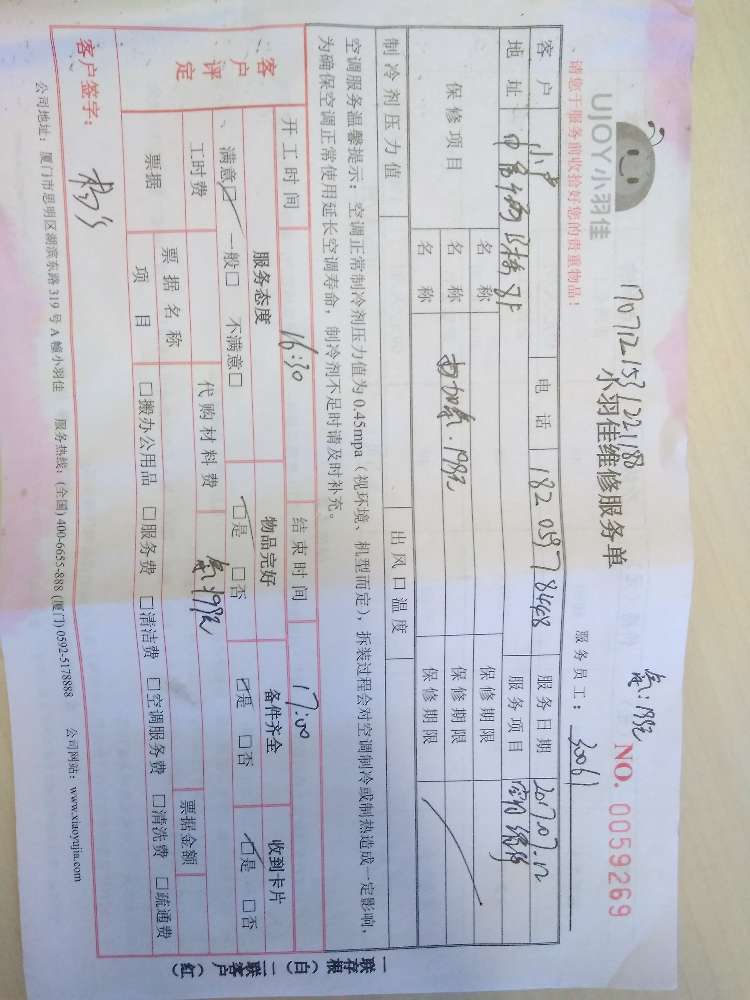 UJOY小羽佳
170712153122188
氟:198元
小羽佳维修服务单
NO. 0059269
、请您于服务前收拾好您的贵重物品!
服务员工: 30061
客户 电话 182 0597 8448 服务日期 2017.07.12
地址 服务项目 空调维修
保修项目 名称 保修期限
名称 加氟.198元 保修期限
名称 保修期限
制冷剂压力值 出风口温度
空调服务温馨提示:空调正常制冷剂压力值为0.45mpa(视环境、机型而定),拆装过程会对空调制冷或制热造成一定影响,
为确保空调正常使用延长空调寿命,制冷剂不足时请及时补充。
开工时间 16:30 结束时间 17:00
客户评定 服务态度 物品完好 备件齐全 收到卡片
满意☑ 一般□ 不满意□ ☑是 □否 ☑是 □否 ☑是 □否
工时费 代购材料费 氟:198元
票据 票据名称 票据金额
项目 □搬办公用品 □服务费 □清洁费 □空调服务费 □清洗费 □疏通费
客户签字:
公司地址:厦门市思明区湖滨东路319号A幢小羽佳 服务热线:(全国)400-6655-888 (厦门)0592-5178888 公司网站:www.xiaoyujia.com
一联存根(白) 二联客户(红)